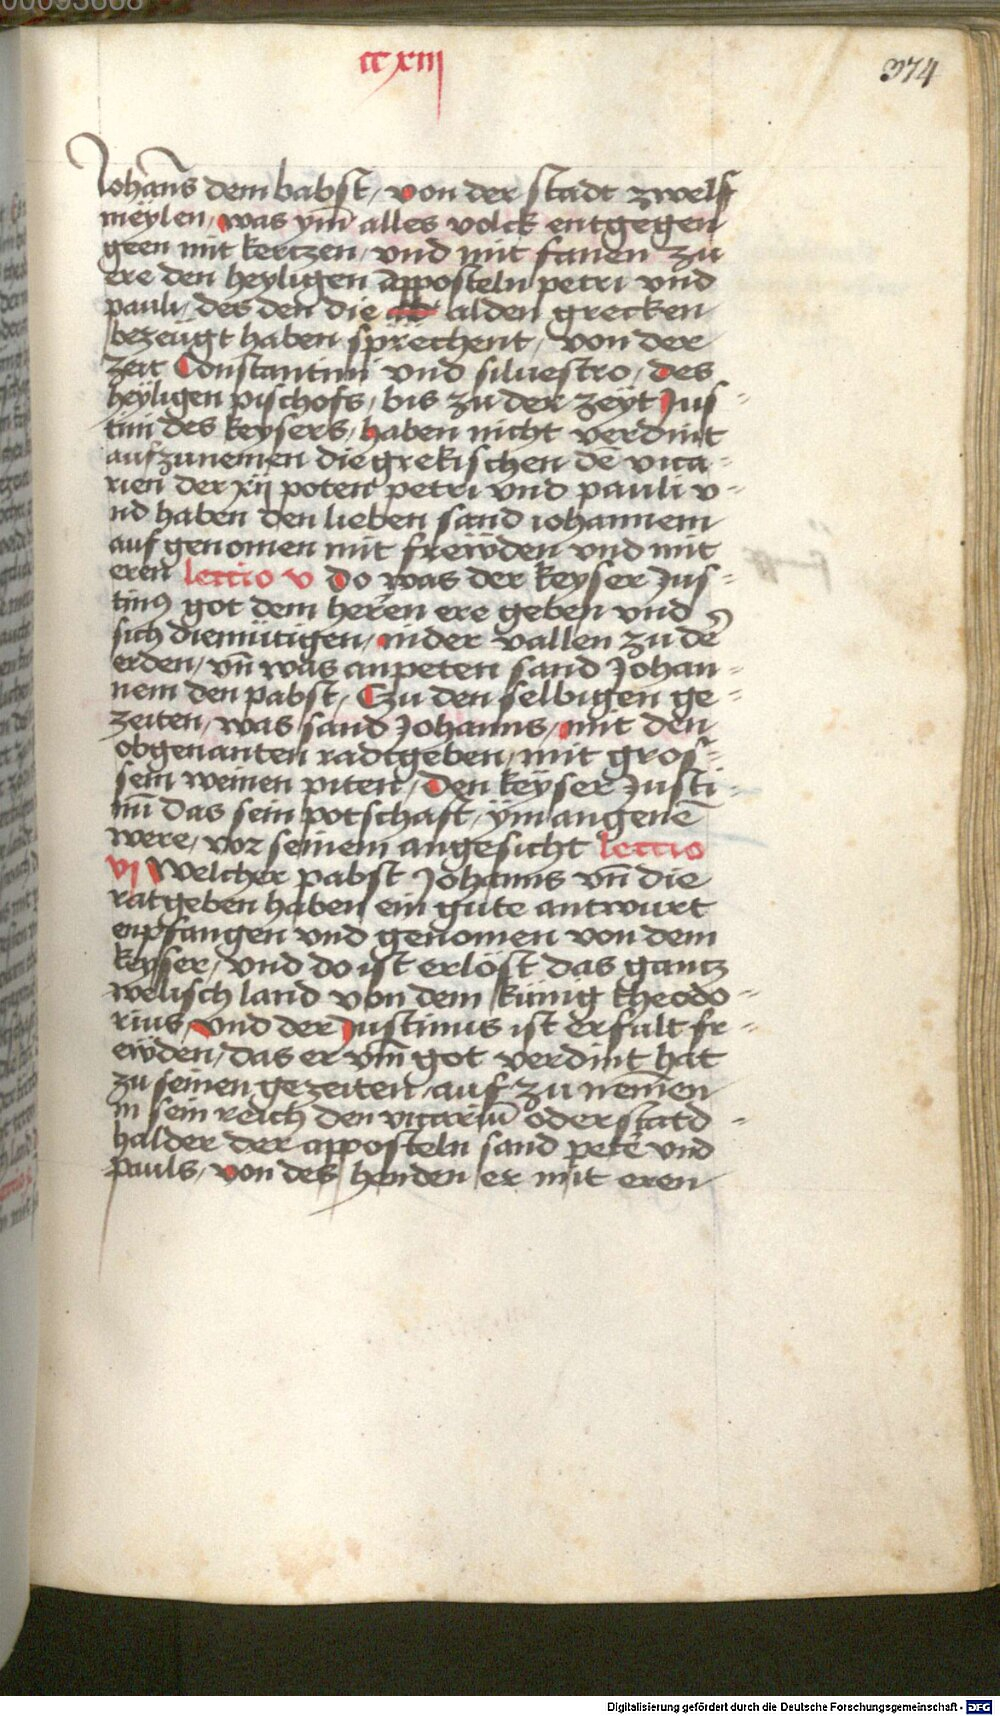 cc xiij
374
Johanns dem babst / von der stadt zwelf
meylen / was ym̄ alles volck entgegen
geen mit kertzen / vnd mit fanen zu
ere den heyligen apposteln petri vnd
pauli / des den die alden grecken
bezeügt haben sprechent / von der
zeit Constantini vnd siluestro / des
heyligen pischofs / bis zu der zeyt Jus-
tini des keysers / haben nicht verdint
aufzunemen die grekischen dē vica-
rien der xij poten petri vnd pauli v-
nd haben den lieben sand iohannem
auf genomen mit freẅden vnd mit
eren lectio v Do was der keyser Jus-
tinꝰ got dem herren ere geben vnd
sich diemütigen / nider vallen zu dē
erden / vn̄ was anpeten sand Johan-
nem den pabst / Czu den selbigen ge-
zeiten / was sand Johanns / mit den
obgenanten radtgeben / mit gros-
sem weinen piten / Den keyser Justi-
nū das sein potschaft / ym angenē
were / vor seinem angesicht lectio
vj Welcher pabst Johanns vn̄ die
ratgeben haben ein gute antwurt
enpfangen vnd genomen von dem
keyser / vnd do ist erlöst das gantz
welisch land von dem künig theodo-
rius / vnd der Justinus ist erfult fr-
eẅden / das er vm̄ got verdint hat
zu seinen gezeiten / auf zu nemen
in sein reich den vicariū oder statd-
halder der apposteln sand petē vnd
pauls / von des henden er mit eren
Digitalisierung gefördert durch die Deutsche Forschungsgemeinschaft - DFG